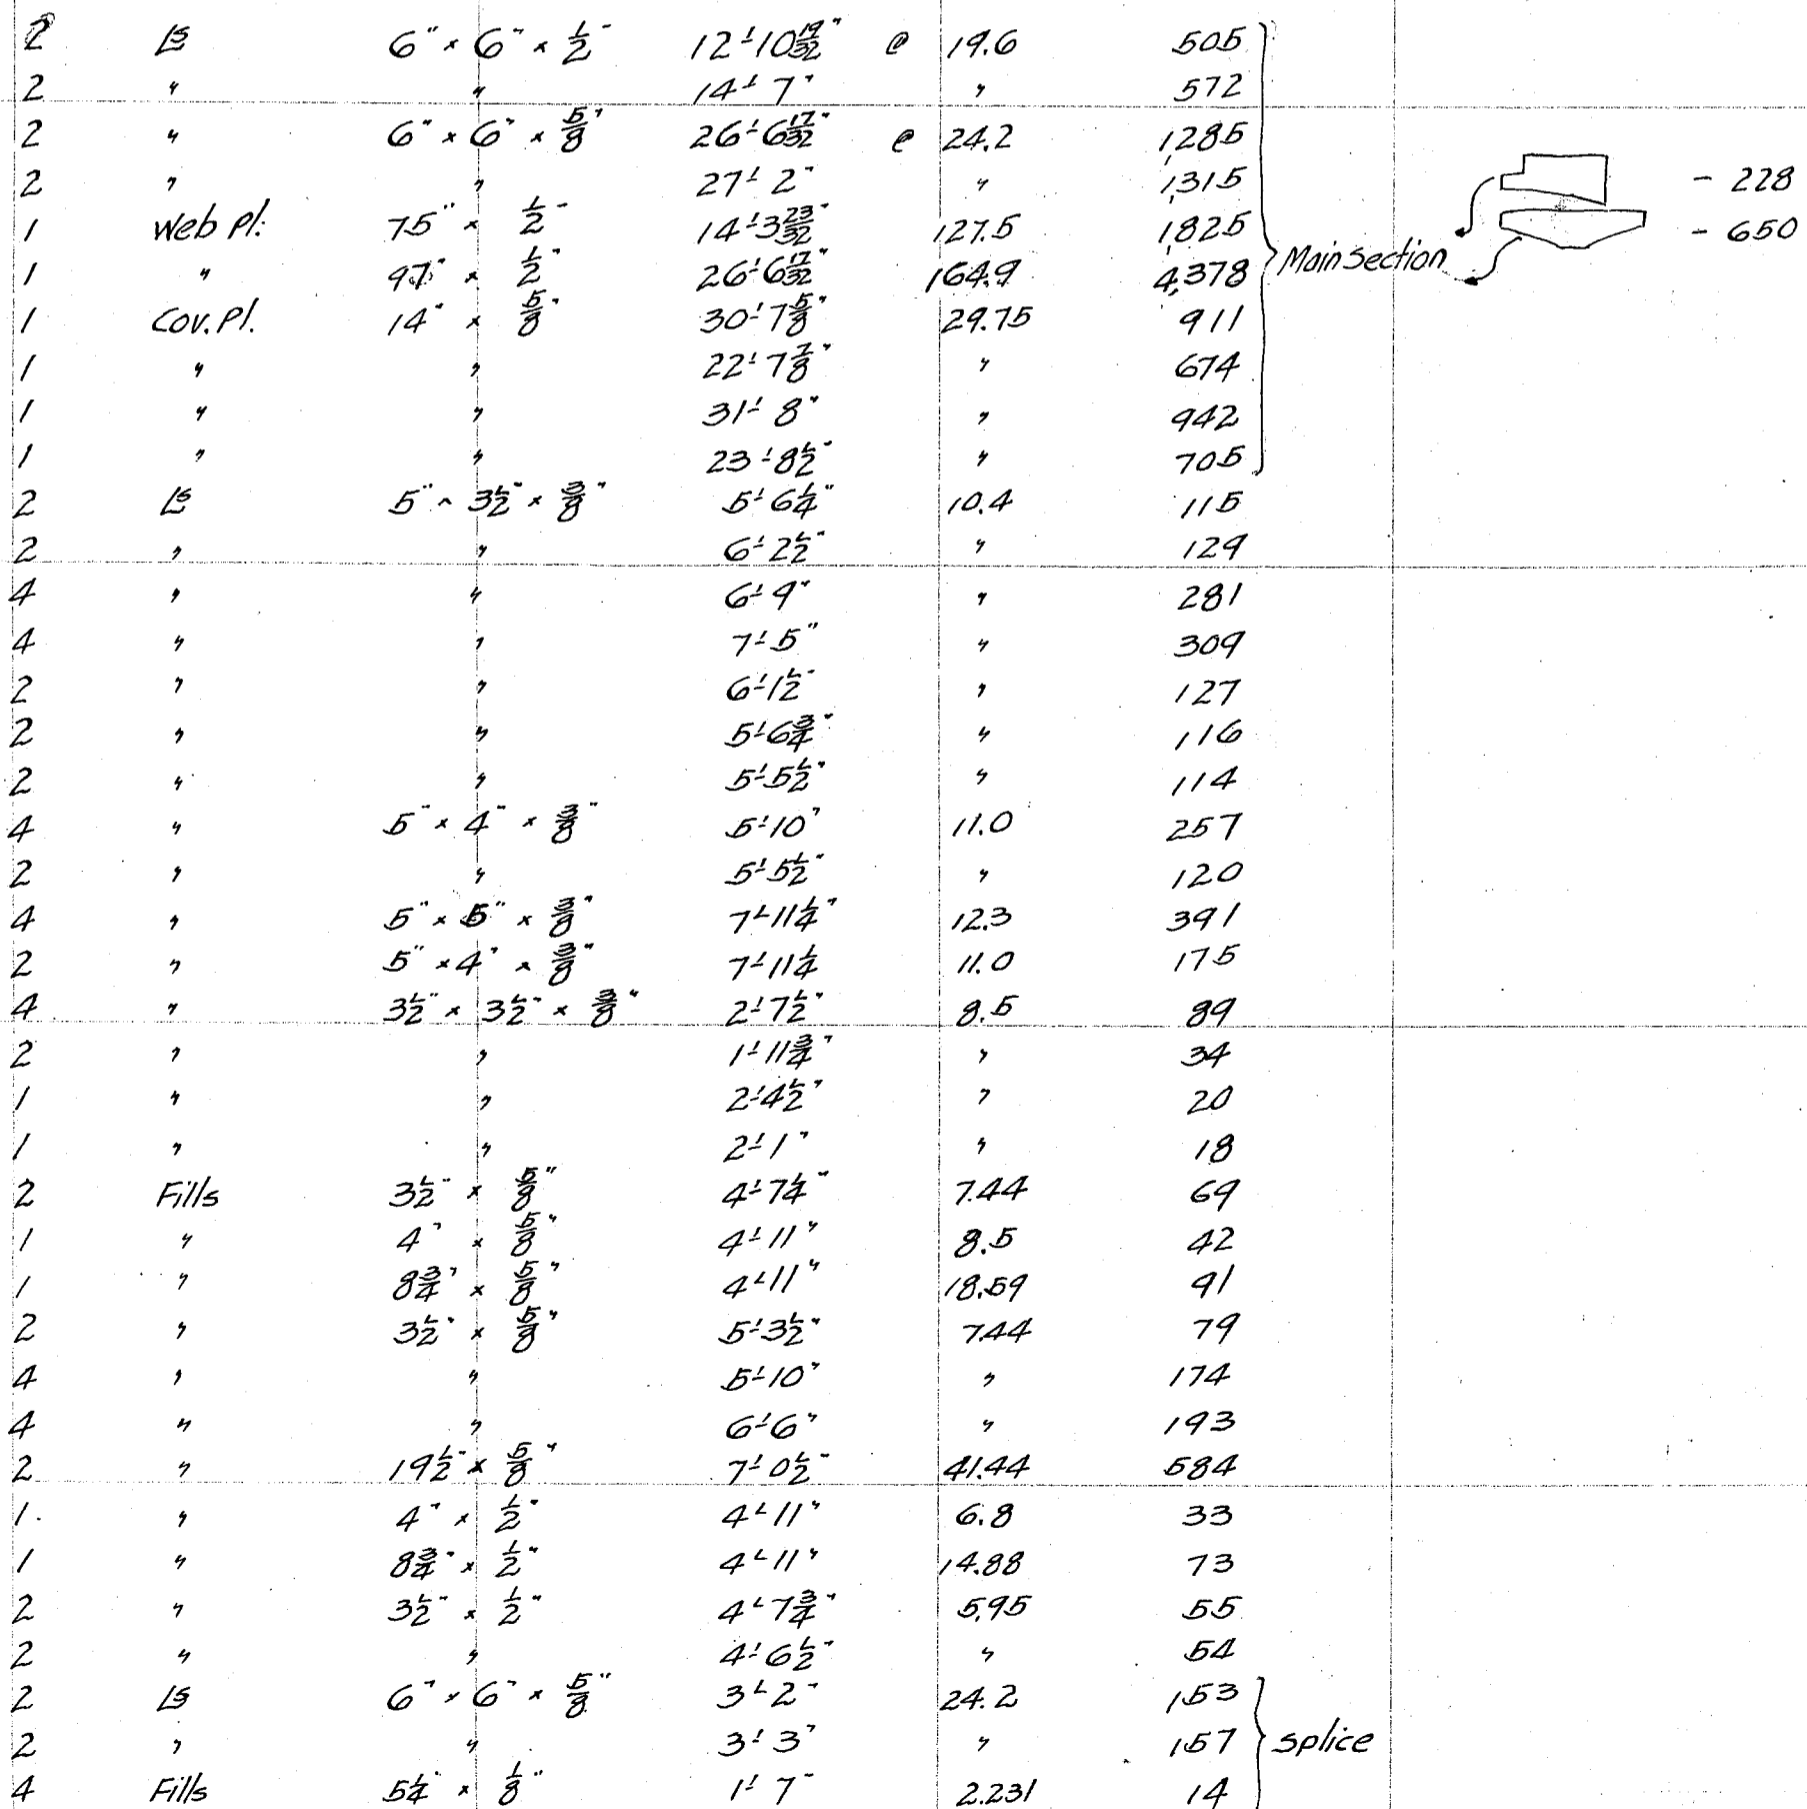 2 Ls 6" × 6" × 1/2" 12'-10 19/32" @ 19.6 505
2 " " 14'-7" " 572
2 " 6" × 6" × 5/8" 26'-6 17/32" @ 24.2 1,285
2 " " 27'-2" " 1,315 - 228
1 Web Pl. 75" × 1/2" 14'-3 23/32" 127.5 1,825 - 650
1 " 97" × 1/2" 26'-6 17/32" 164.9 4,378 Main Section
1 Cov. Pl. 14" × 5/8" 30'-7 5/8" 29.75 911
1 " " 22'-7 7/8" " 674
1 " " 31'-8" " 942
1 " " 23'-8 1/2" " 705
2 Ls 5" × 3 1/2" × 3/8" 5'-6 1/4" 10.4 115
2 " " 6'-2 1/2" " 129
4 " " 6'-9" " 281
4 " " 7'-5" " 309
2 " " 6'-1 1/2" " 127
2 " " 5'-6 3/4" " 116
2 " " 5'-5 1/2" " 114
4 " 5" × 4" × 3/8" 5'-10" 11.0 257
2 " " 5'-5 1/2" " 120
4 " 5" × 5" × 3/8" 7'-11 1/4" 12.3 391
2 " 5" × 4" × 3/8" 7'-11 1/4 11.0 175
4 " 3 1/2" × 3 1/2" × 3/8" 2'-7 1/2" 8.5 89
2 " " 1'-11 3/4" " 34
1 " " 2'-4 1/2" " 20
1 " " 2'-1" " 18
2 Fills 3 1/2" × 5/8" 4'-7 1/4" 7.44 69
1 " 4" × 5/8" 4'-11" 8.5 42
1 " 8 3/4" × 5/8" 4'-11" 18.59 91
2 " 3 1/2" × 5/8" 5'-3 1/2" 7.44 79
4 " " 5'-10" " 174
4 " " 6'-6" " 193
2 " 19 1/2" × 5/8" 7'-0 1/2" 41.44 584
1. " 4" × 1/2" 4'-11" 6.8 33
1 " 8 3/4" × 1/2" 4'-11" 14.88 73
2 " 3 1/2" × 1/2" 4'-7 3/4" 5.95 55
2 " " 4'-6 1/2" " 54
2 Ls 6" × 6" × 5/8" 3'-2" 24.2 153
2 " " 3'-3" " 157 splice
4 Fills 5 1/4" × 1/8" 1'-7" 2.231 14